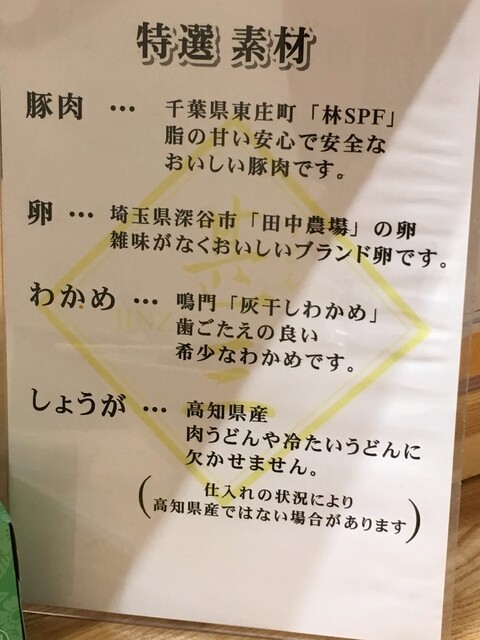 特選 素材
豚肉 … 千葉県東庄町「林SPF」
脂の甘い安心で安全な
おいしい豚肉です。
卵 … 埼玉県深谷市「田中農場」の卵
雑味がなくおいしいブランド卵です。
わかめ … 鳴門「灰干しわかめ」
歯ごたえの良い
希少なわかめです。
しょうが … 高知県産
肉うどんや冷たいうどんに
欠かせません。
(仕入れの状況により
高知県産ではない場合があります)